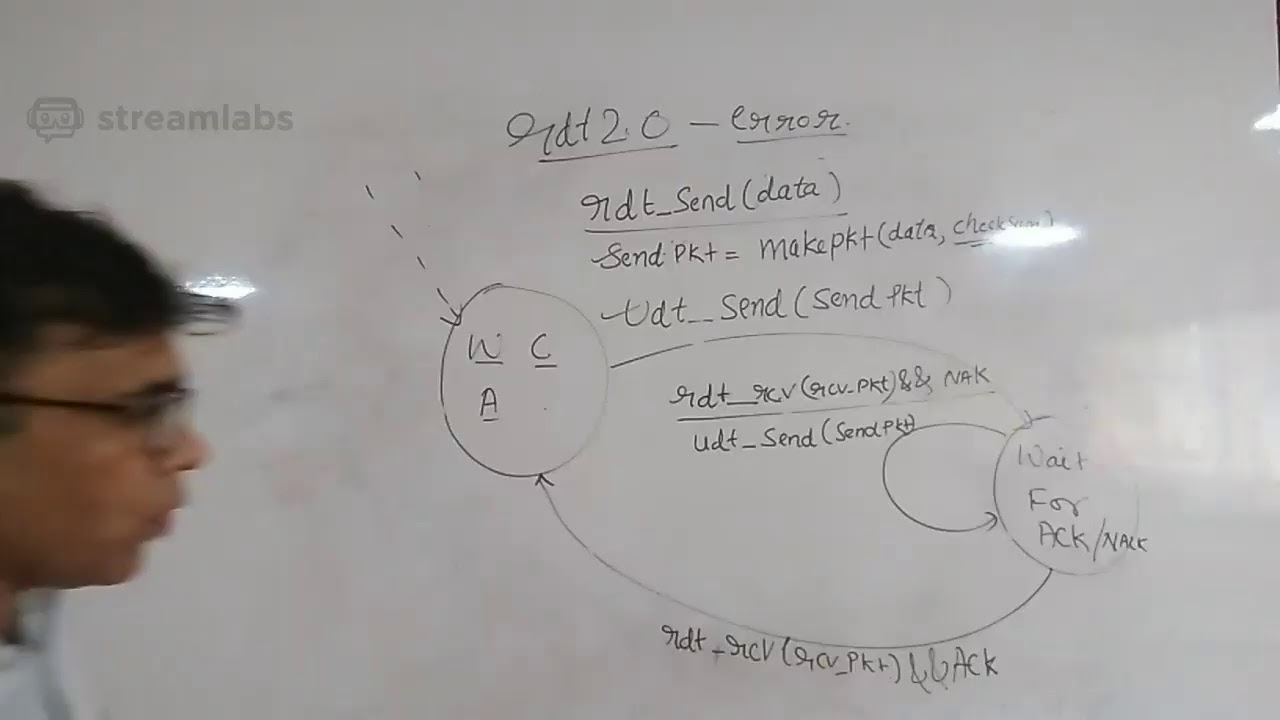 streamlabs
rdt 2.0 – error.
rdt_send(data)
Send pkt = makepkt(data, checksum)
Udt_Send(Send pkt)
W C
A
rdt_rcv(rcv_pkt)&& NAK
udt_send(sendpkt)
Wait
For
ACK/NACK
rdt_rcv(rcv_pkt)&&ACK